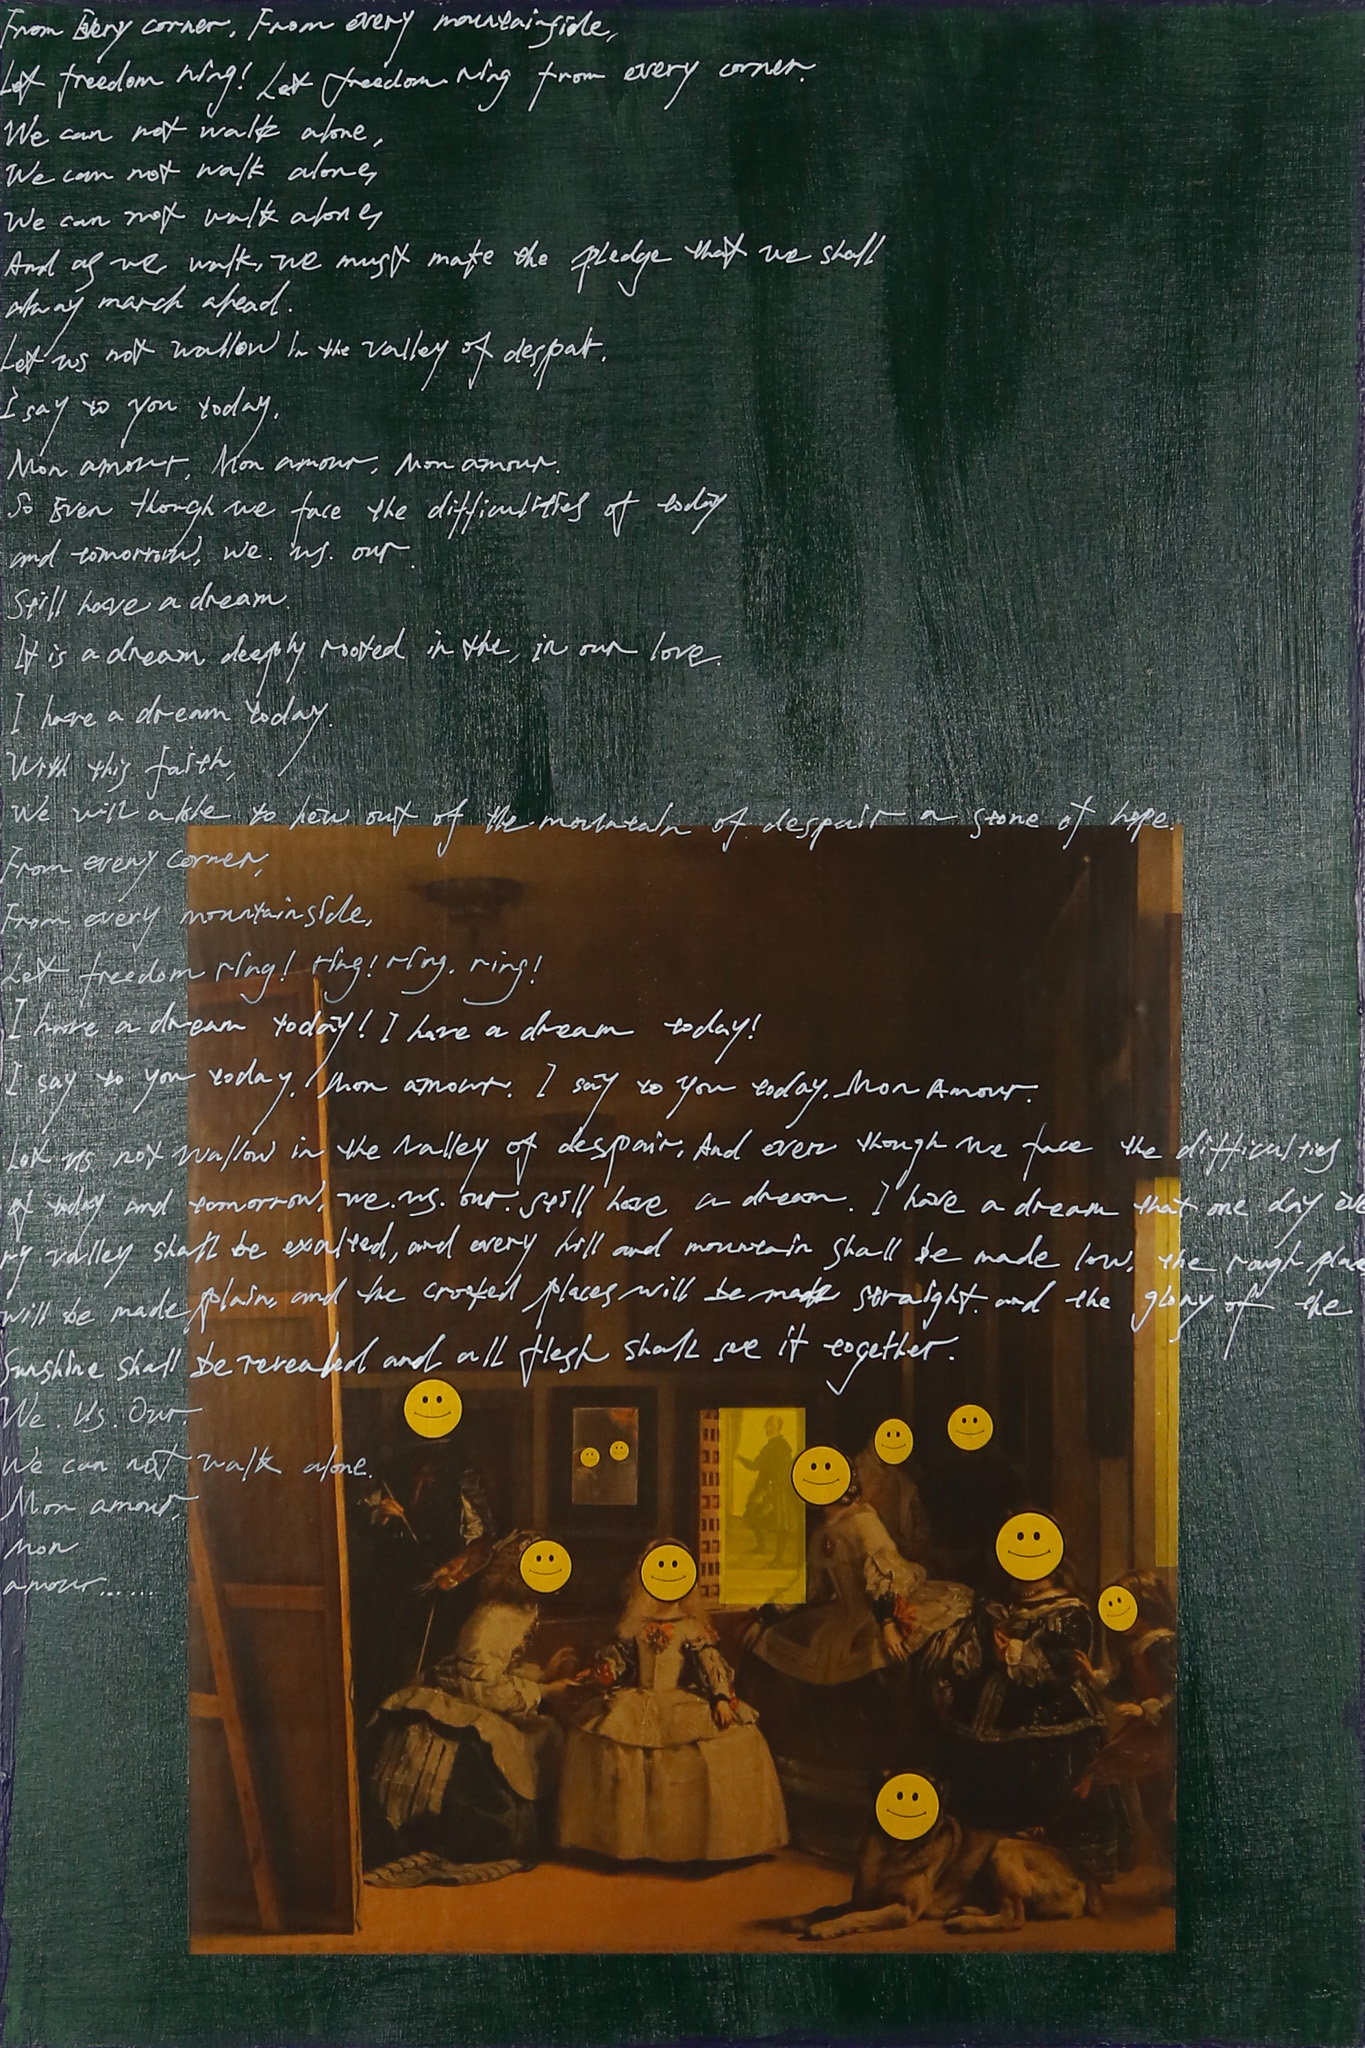 From Every corner. From every mountainside,
Let freedom ring! Let freedom ring from every corner.
We can not walk alone,
We can not walk alone,
We can not walk alone,
And as we walk, we must make the pledge that we shall
alway march ahead.
Let us not wallow in the valley of despat.
I say to you today.
Mon amour, Mon amour, Mon amour.
So Even though we face the difficulties of today
and tomorrow, we. us. our.
Still have a dream.
It is a dream deeply rooted in the, in our love.
I have a dream today.
With this faith,
We will able to hew out of the mountain of despair a stone of hope.
From every corner,
From every mountainside,
Let freedom ring! ring! ring. ring!
I have a dream today! I have a dream today!
I say to you today. Mon amour. I say to you today. Mon Amour.
Let us not wallow in the valley of despair, And even though we face the difficulties
of today and tomorrow, we. us. our. still have a dream. I have a dream that one day eve
ry valley shall be exalted, and every hill and mountain shall be made low, the rough place
will be made plain, and the crooked places will be made straight. and the glory of the
Sunshine shall be revealed and all flesh shall see it together.
We. Us. Our.
We can not walk alone.
Mon amour,
Mon
amour......